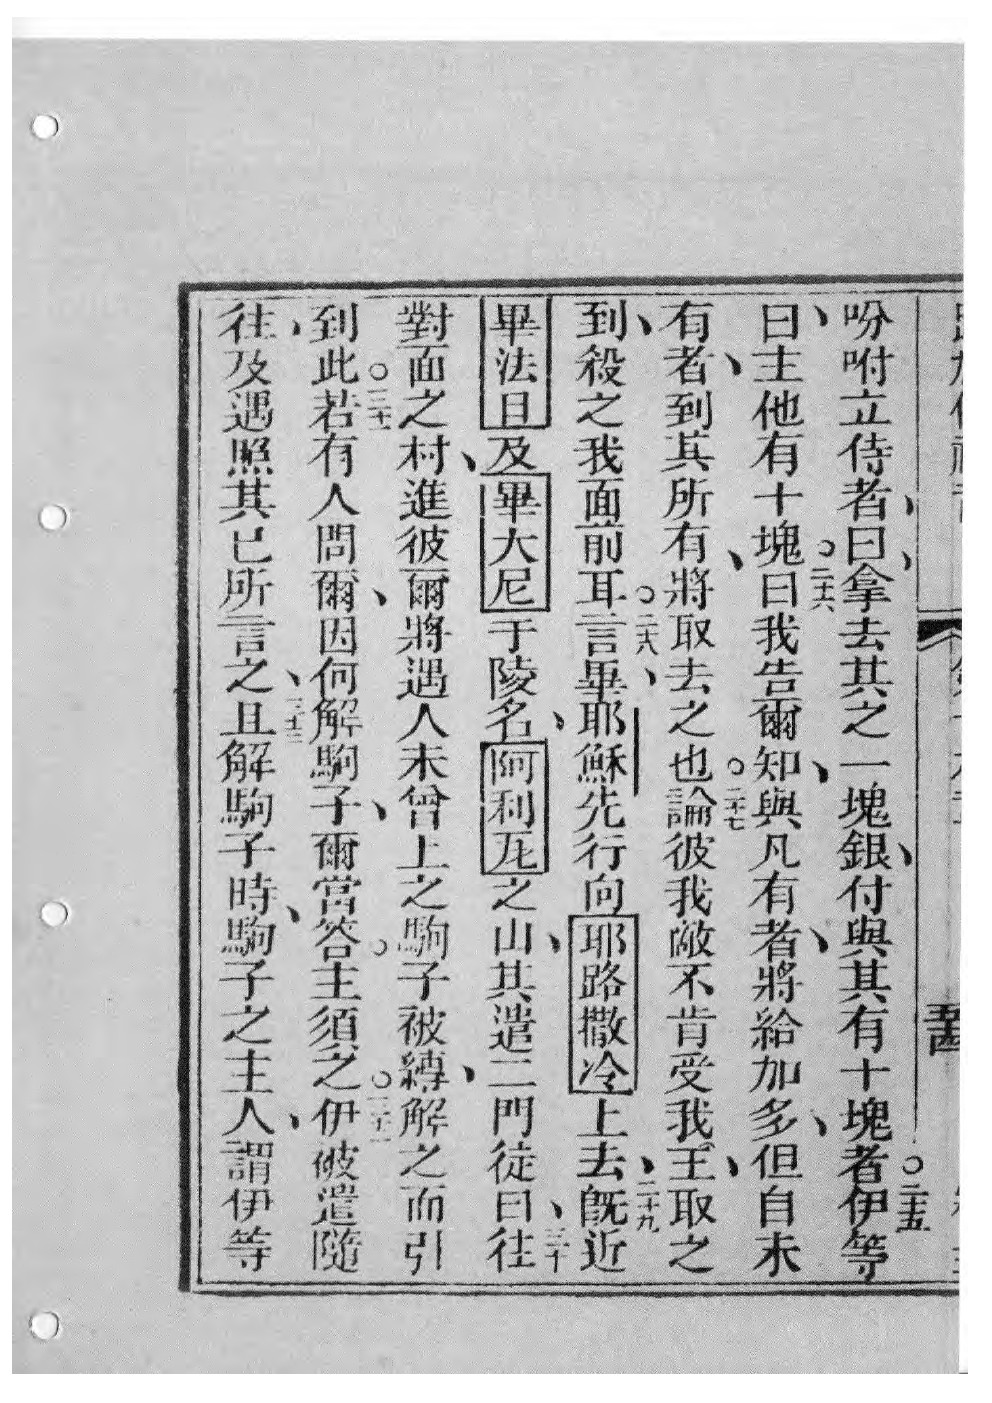 吩咐立侍者、曰、拿去其之一塊銀、付與其有十塊者○二十五伊等
曰、主他有十塊○二十六曰我告爾知、與凡有者、將給加多、但自未
有者、到其所有、將取去之也○二十七論彼我敵不肯受我王、取之
到、殺之我面前耳○二十八言畢、耶穌先行向耶路撒冷上去、二十九旣近
畢法日及、畢大尼于陵名、阿利瓦之山、其遣二門徒曰、三十往
對面之村、進彼爾將遇人未曾上之駒子被縛、解之而引
到此○三十一若有人問爾、因何解駒子、爾當答。主須之○三十二伊被遣隨
往、及遇照其已所言之、三十三且解駒子時、駒子之主人、謂伊等